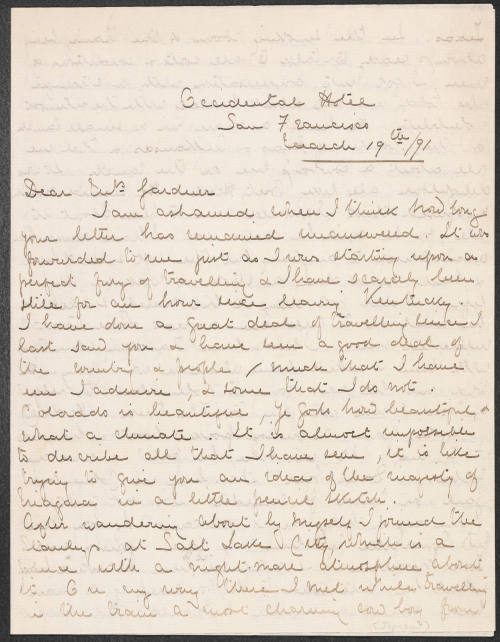 Occidental Hotel
San Francisco
March 19th/91
Dear Mrs Gardner
I am ashamed when I think how long
your letter has remained unanswered. It was
forwarded to me just as I was starting upon a
perfect fury of travelling & I have scarcely been
still for an hour since leaving Kentucky.
I have done a great deal of travelling since I
last saw you & have seen a good deal of
the country & people / much that I have
seen I admire, & some that I do not.
Colorado is beautiful, Ye Gods how beautiful &
what a climate. It is almost impossible
to describe all that I have seen, it is like
trying to give you an idea of the majesty of
Niagara in a little pencil sketch.
After wandering about by myself I joined the
Stanleys at Salt Lake City which is a
with a night-mare atmosphere about
it. On my way there I met while travelling
in the train a most charming cow boy from